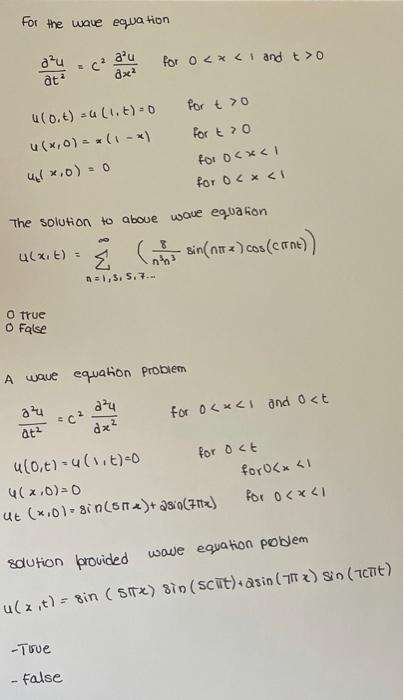 For the wave equation
∂²u/∂t² = c² ∂²u/∂x² for 0 < x < 1 and t > 0
u(0,t) = u(1,t) = 0 for t > 0
u(x,0) = x(1-x) for t > 0
for 0 < x < 1
u_t(x,0) = 0 for 0 < x < 1
The solution to above wave equation
u(x,t) = ∞ Σ n=1,3,5,7... (8/n³π³ sin(nπx) cos(cπnt))
O True
O False
A wave equation problem
∂²u/∂t² = c² ∂²u/∂x² for 0 < x < 1 and 0 < t
u(0,t) = u(1,t) = 0 for 0 < t
u(x,0) = 0 for 0 < x < 1
ut (x,0) = sin(5πx) + 2sin(7πx) for 0 < x < 1
solution provided wave equation problem
u(x,t) = sin (5πx) sin (5cπt) + 2sin(7πx) sin (7cπt)
- True
- False